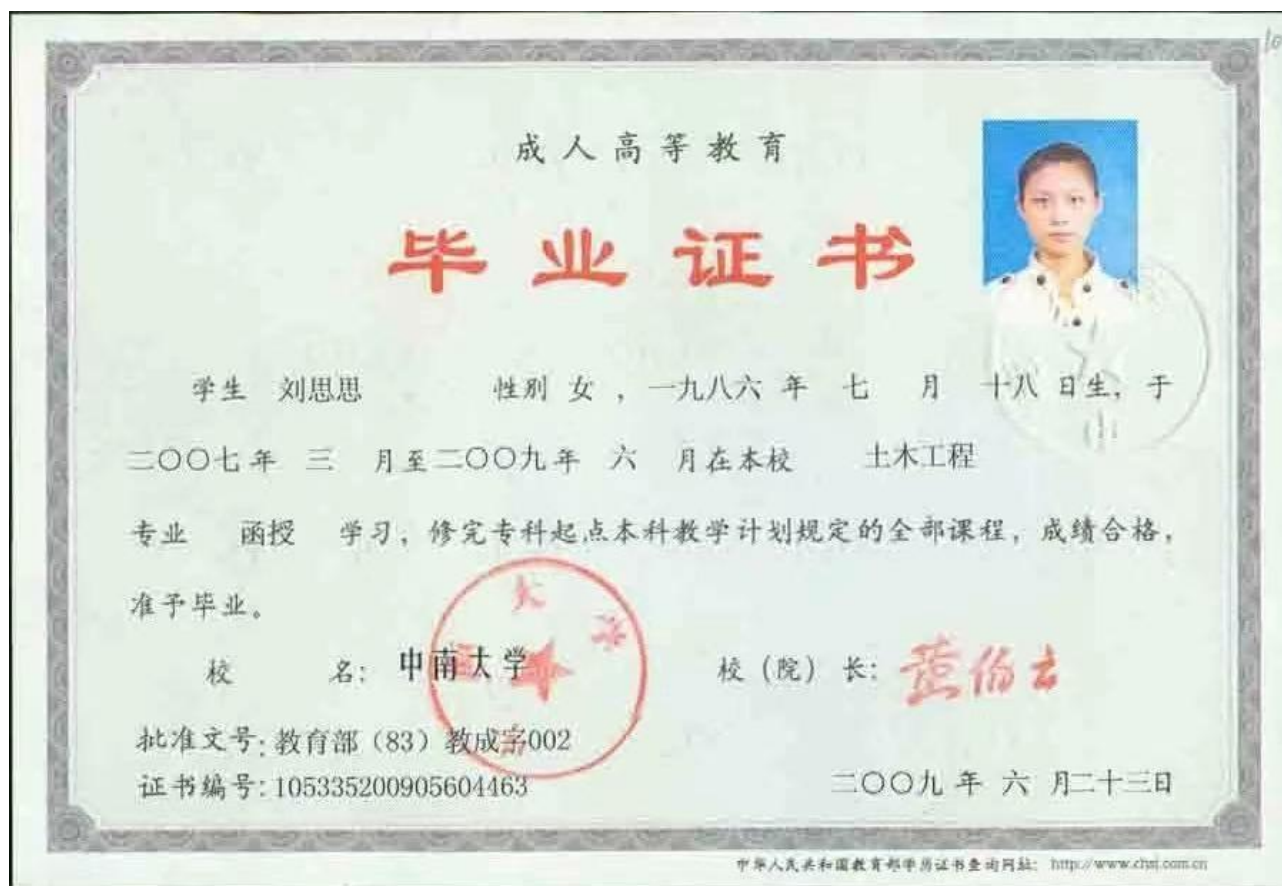 成人高等教育
毕业证书
学生 刘思思 性别 女 ，一九八六 年 七 月 十八 日生，于
二〇〇七年 三 月至二〇〇九年 六 月在本校 土木工程
专业 函授 学习，修完专科起点本科教学计划规定的全部课程，成绩合格，
准予毕业。
校 名：中南大学 校（院）长：
批准文号：教育部（83）教成字002
证书编号：105335200905604463
二〇〇九 年 六 月二十三日
中华人民共和国教育部学历证书查询网址： http://www.chsi.com.cn